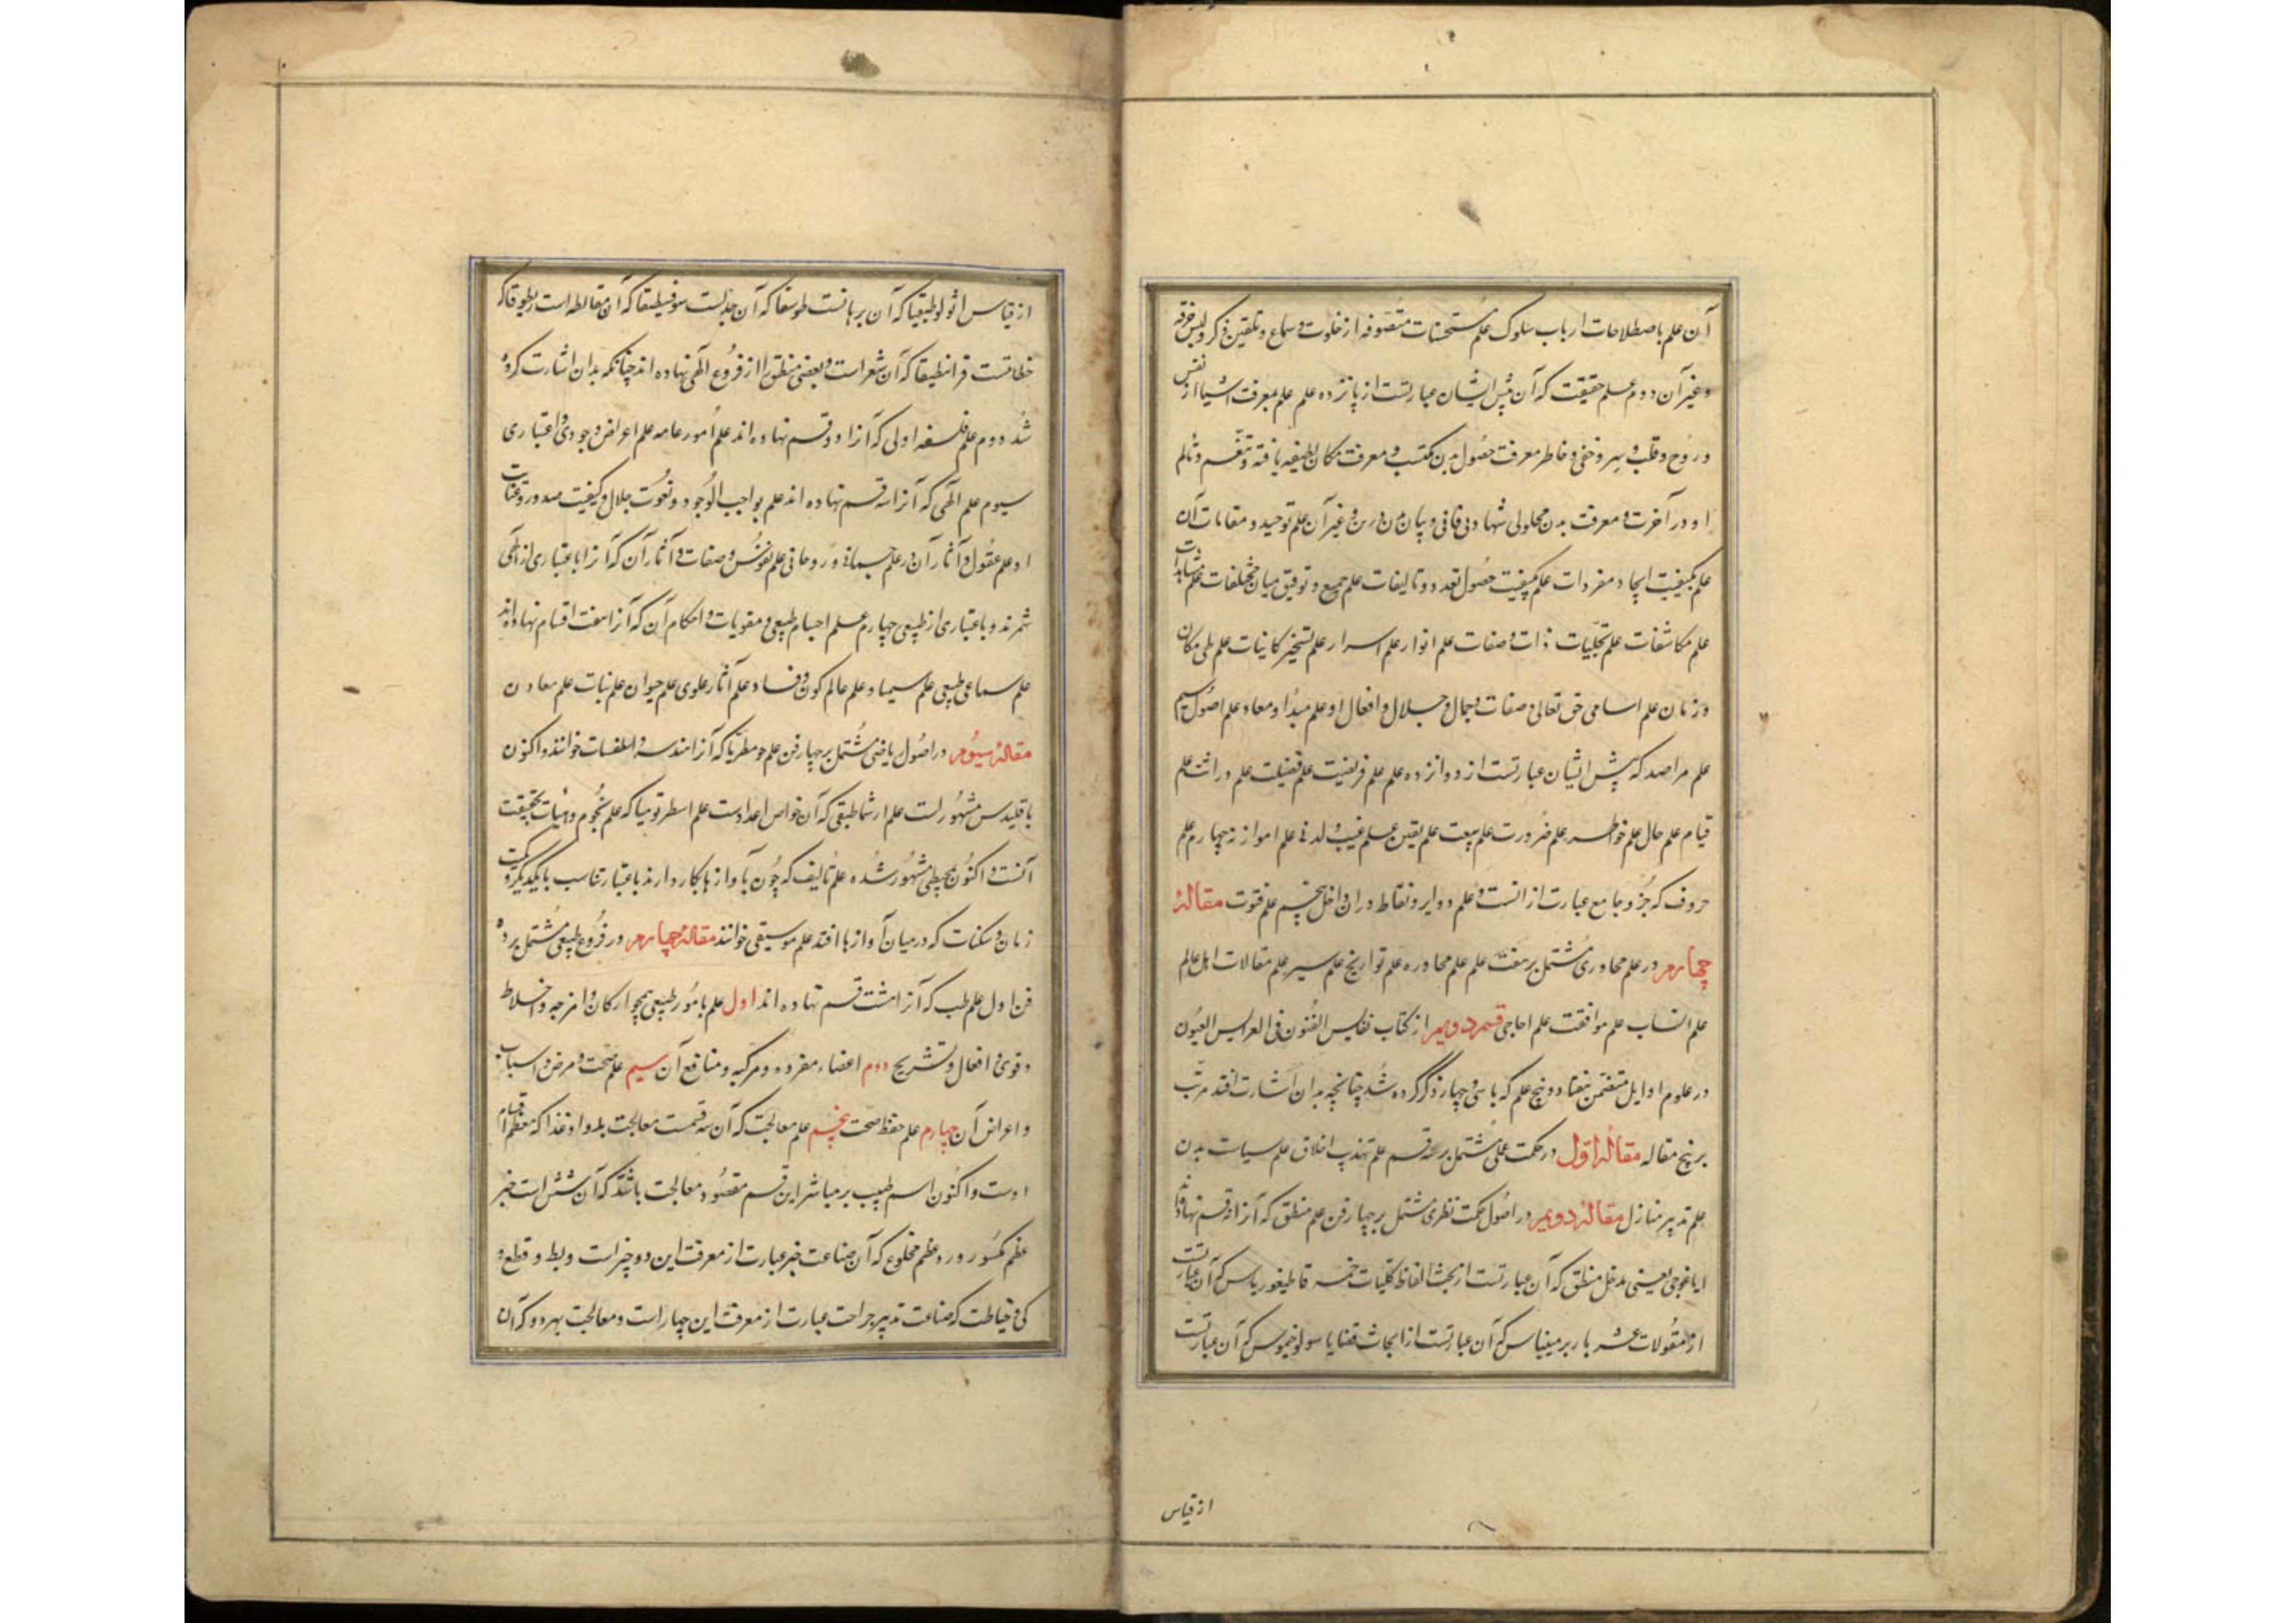 آن علم باصطلاحات ارباب سلوک علم مستحسنات متصوفه از خلوت و سماع و تلقین ذکر و لبس خرقه
و غیر آن دوم علم حقیقت که آن پیش ایشان عبارتست از پانزده علم علم معرفت اشیا از نفس
و روح و قلب و سر و خفی و خاطر معرفت حصول بدن مکتسب و معرفت مکان لطیفه یافته و تنعم و تألم
او در آخرت و معرفت بدن محلولی شهادی فانی و غیر آن علم توحید و مقامات آن
علم بکیفیت ایجاد مفردات علم کیفیت حصول تعدد و تالیفات علم جمع و توفیق میان مختلفات علم مشاهدات
علم مکاشفات علم تجلیات ذات و صفات علم انوار علم اسرار علم تسخیر کاینات علم طی مکان
و زمان علم اسامی حق تعالی و صفات و جمال و جلال و افعال او علم مبدا و معاد علم اصول سیم
علم مراصد که پیش ایشان عبارتست از دوازده علم علم فریضیت علم فضیلت علم دراثت علم
قیام علم حال علم خواطر علم ضرورت علم سعت علم یقین علم غیب و لدنی علم موازنه چهارم علم
حروف که جز و جامع عبارت از انست و علم دوایر و نقاط در ان داخل پنجم علم فتوت مقالهٔ
چهارم در علم محاوری مشتمل بر هفت علم علم محاوره علم تواریخ علم سیر علم مقالات اهل عالم
علم انساب علم موافقت علم احاجی قسم دویم از کتاب نفایس الفنون فی العرایس العیون
در علوم اوایل متضمن هفتاد و پنج علم که با سی و چهار ذکر کرده شد چنانچه بدان اشارت افتد مرتب
بر پنج مقاله مقاله اول در حکمت عملی مشتمل بر سه قسم علم تهذیب اخلاق علم سیاست مدن
علم تدبیر منازل مقالهٔ دویم در اصول حکمت نظری مشتمل بر چهار فن علم منطق که آنرا نه قسم نهاده‌اند
ایاغوجی یعنی مدخل منطق که آن عبارتست از بحث الفاظ کلیات خمسه قاطیغوریاس که آن عبارتست
از مقولات عشر باربرمیناس که آن عبارتست از ابحاث قضایا سولوخیموس که آن عبارتست
از قیاس
از قیاس انولوطیقیا که آن برهانست طوسقا که آن جدلست سوفسطیقا که آن مغالطه است ریطوقا که
خطابتست قرانطیقا که آن شعر است و بعضی منطق را از فروع الهی نهاده اند چنانکه بدان اشارت کرده
شد دوم علم فلسفه اولی که آنرا دو قسم نهاده اند علم امور عامه علم اعراض وجودی و اعتباری
سیوم علم الهی که آنرا سه قسم نهاده اند علم بواجب الوجود و نعوت جلال و کیفیت صدور و عنایت
او علم عقول و آثار آن در علم جسمانی و روحانی علم نفوس و صفات و آثار آن که آنرا باعتباری از الهی
شمرند و باعتباری از طبیعی چهارم علم اجسام طبیعی و مقویات و احکام آن که آنرا هفت اقسام نهاده‌اند
علم سماع طبیعی علم سیما و علم عالم کون و فساد علم آثار علوی علم حیوان علم نبات علم معادن
مقالهٔ سیوم در اصول ریاضی مشتمل بر چهار فن علم جومطریا که آنرا هندسه و اسطقسات خوانند و اکنون
باقلیدس مشهور است علم ارثماطیقی که آن خواص اعداد است علم اسطرنومیا که علم نجوم و هیأت بحقیقت
آنست و اکنون بمجسطی مشهور شده علم تألیف که چون بآوازها بکار دارند باعتبار تناسب بایکدیگر و کمیت
زمان و سکنات که در میان آوازها افتد علم موسیقی خوانند مقالهٔ چهارم در فروع طبیعی مشتمل بر ده
فن اول علم طب که آنرا هشت قسم نهاده اند اول علم بامور طبیعی همچو ارکان و امزجه و اخلاط
و قوی و افعال و تشریح دوم اعضاء مفرده و مرکبه و منافع آن سیم علم صحت و مرض و اسباب
و اعراض آن چهارم علم حفظ صحت پنجم علم معالجت که آن سه قسمت معالجت بدوا و غذا که معظم اقسام
اوست و اکنون اسم طبیب بر مباشر این قسم مقصود معالجت باشد که آن شش است جبر
عظم مکسور و رد عظم مخلوع که آن صناعت جبر عبارت از معرفت این دو چیز است و بط و قطع و
کی و خیاطت که صناعت تدبیر جراحت عبارت از معرفت این چهار است و معالجت بهر دو که آن